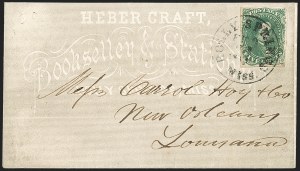 HEBER CRAFT,
Bookseller & Stati
HOLLY SPRINGS
MISS.
Messrs Carrol Hoy & Co
New Orleans
Louisiana